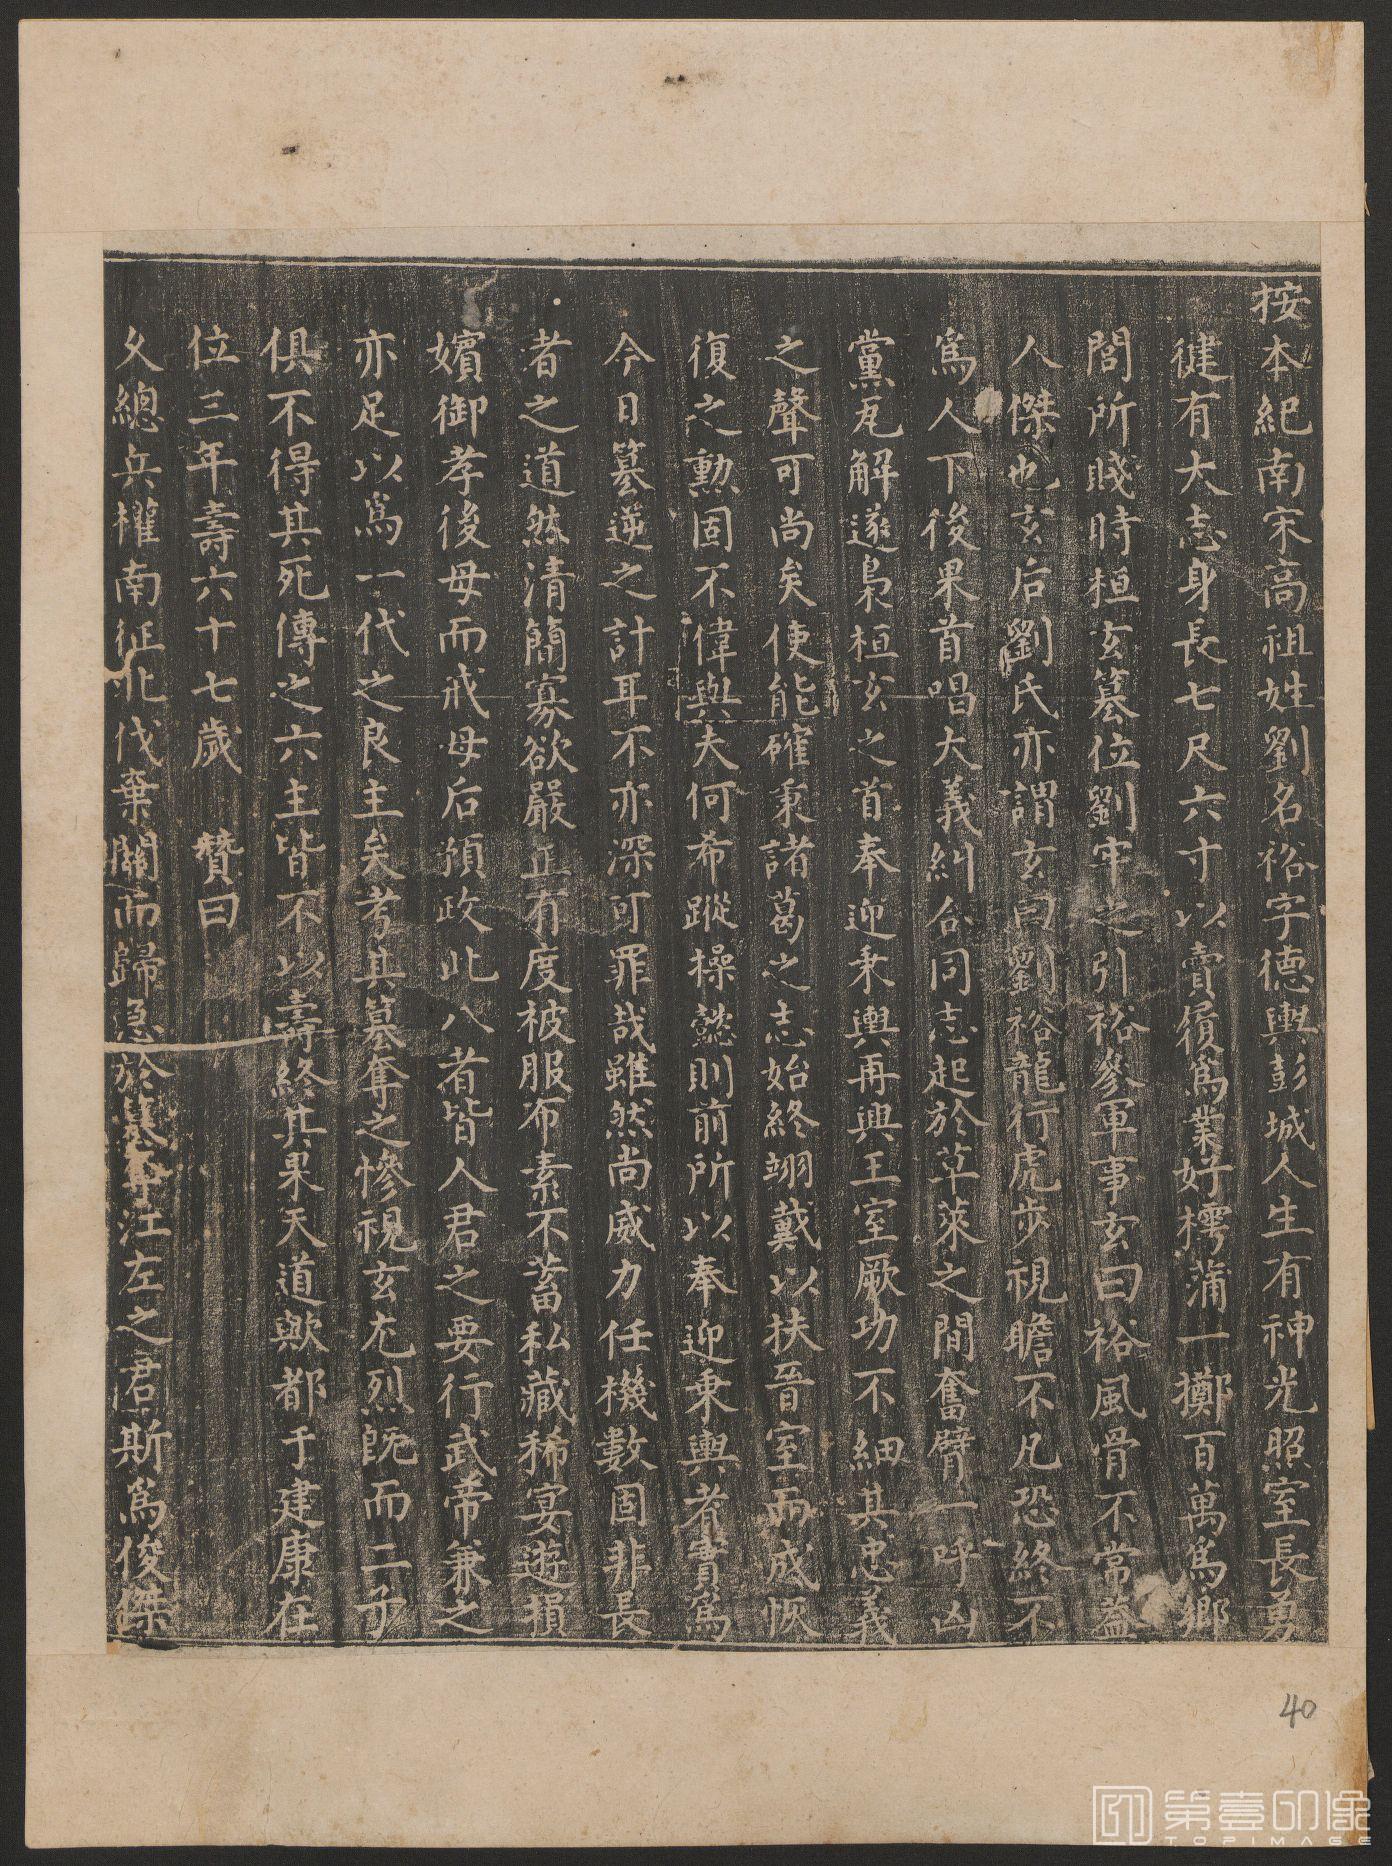 按本紀南宋高祖姓劉名裕字德輿彭城人生有神光照室長勇
健有大志身長七尺六寸以賣履為業好樗蒲一擲百萬為鄉
閭所賤時桓玄篡位劉牢之引裕參軍事玄曰裕風骨不常蓋
人傑也玄后劉氏亦謂玄曰劉裕龍行虎步視瞻不凡恐終不
為人下後果首唱大義糾合同志起於草萊之間奮臂一呼凶
黨瓦解遂梟桓玄之首奉迎乘輿再興王室厥功不細其忠義
之聲可尚矣使能確秉諸葛之志始終翊戴以扶晉室而成恢
復之勳固不偉與夫何希蹤操懿則前所以奉迎乘輿者實為
今日篡逆之計耳不亦深可罪哉雖然尚威力任機數固非長
者之道然清簡寡欲嚴正有度被服布素不蓄私藏稀宴遊損
嬪御孝後母而戒母后預政此八者皆人君之要行武帝兼之
亦足以為一代之良主矣考其篡奪之慘視玄尤烈旣而二子
俱不得其死傳之六主皆不以壽終其果天道歟都于建康在
位三年壽六十七歲 贊曰
久總兵權南征北伐棄關而歸急於篡奪江左之君斯為俊傑
40
第壹印像
TOPIMAGE